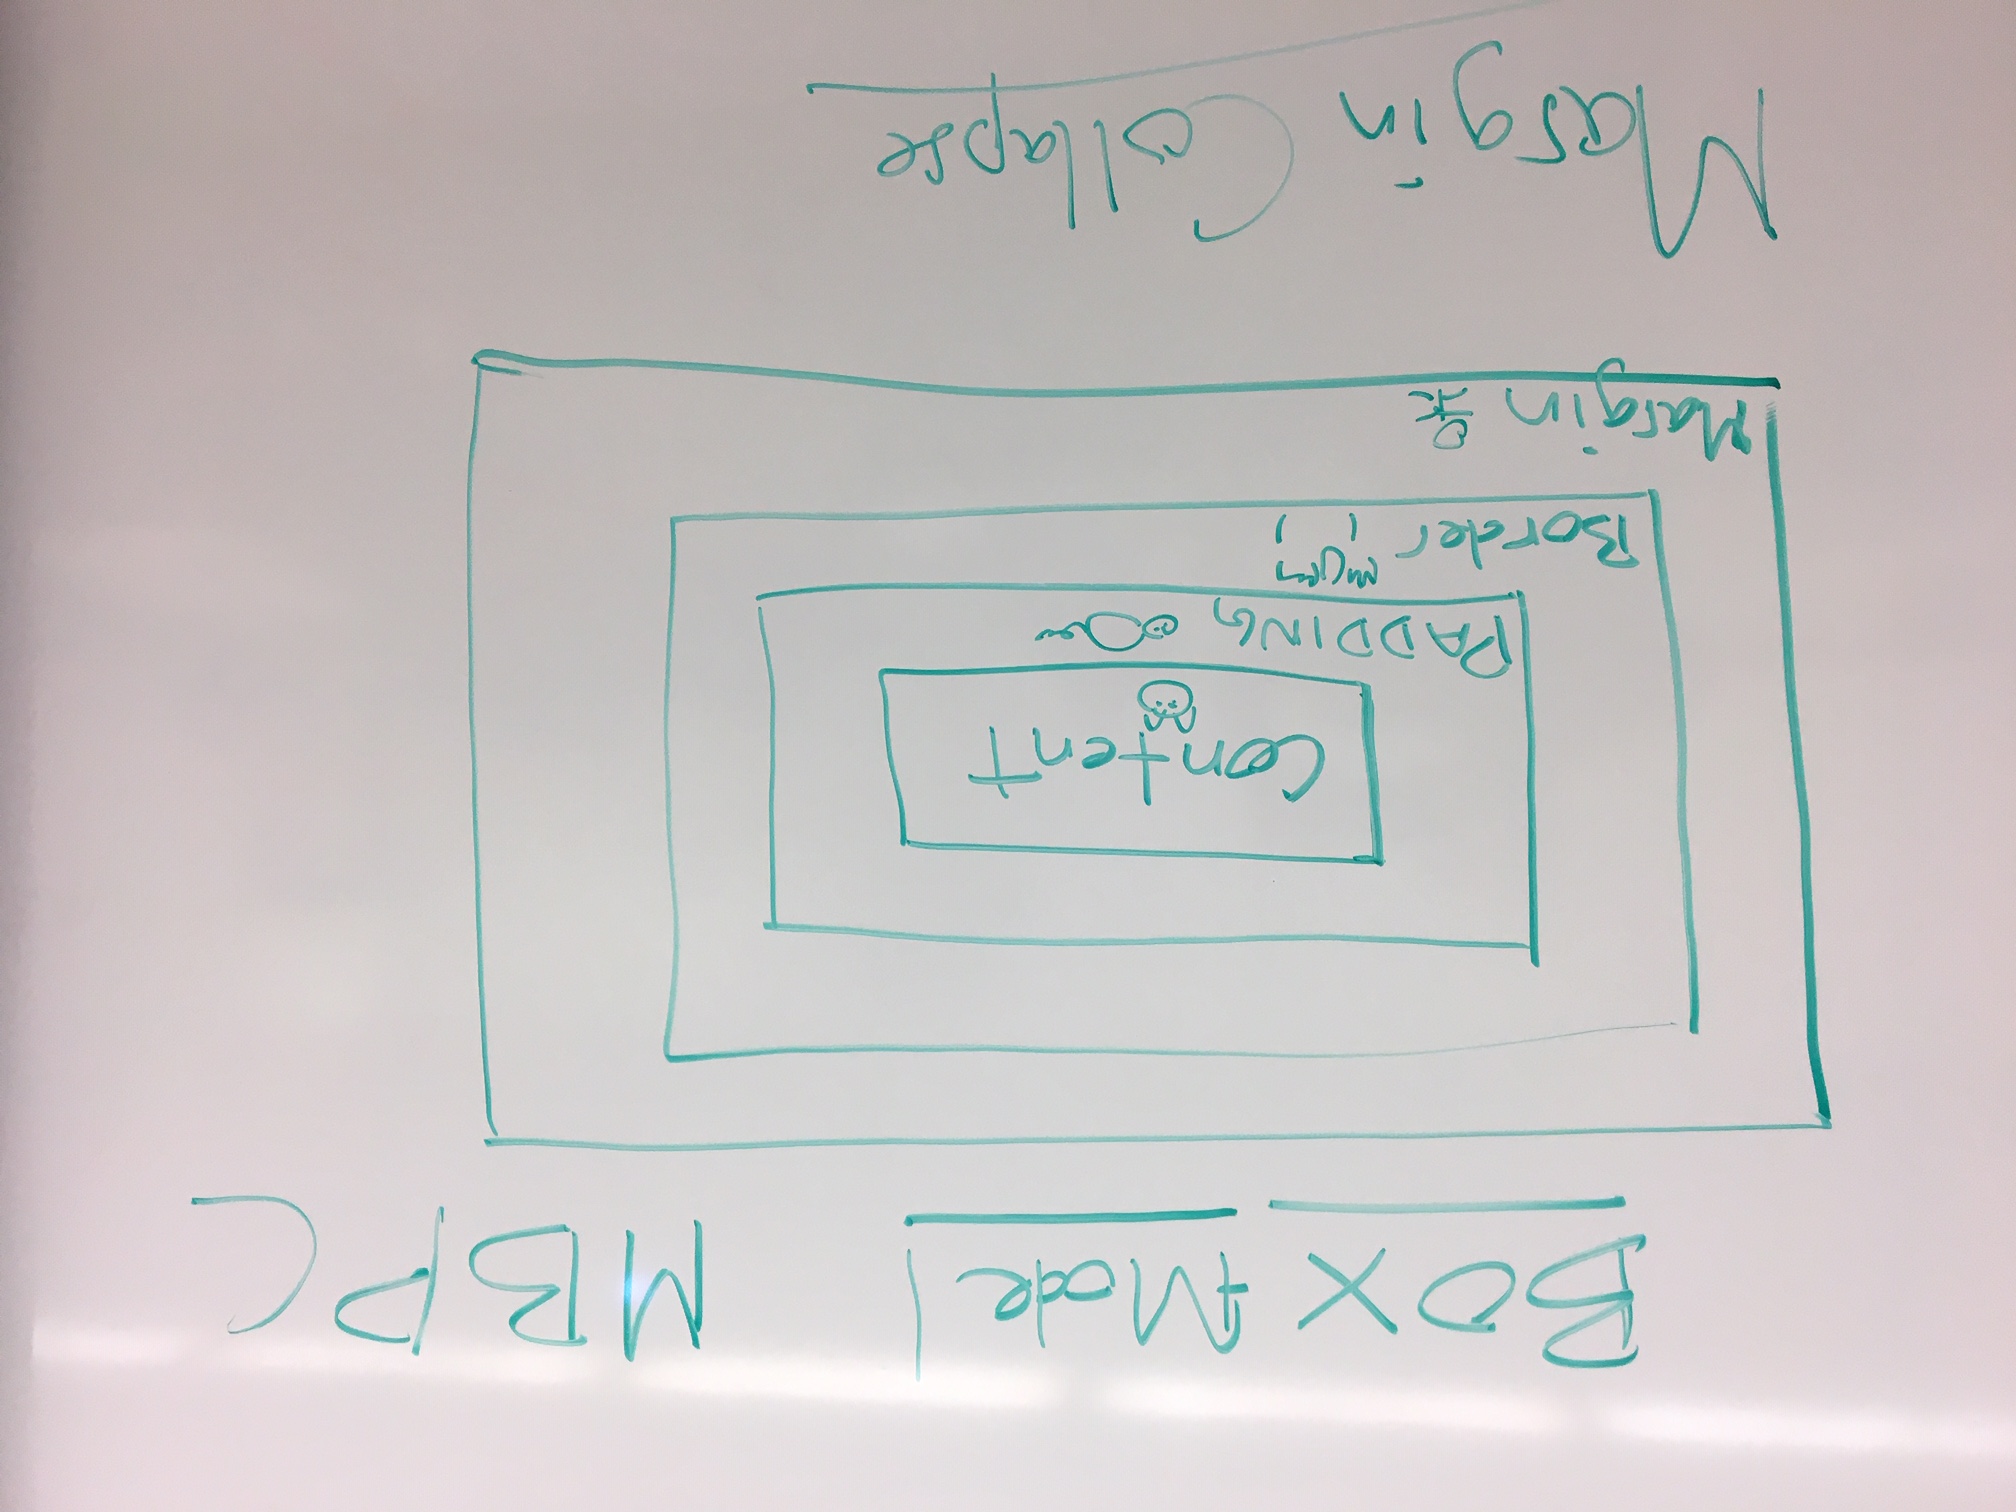 Box Model MBPC
Content
PADDING
Border
Margin
Margin Collapse